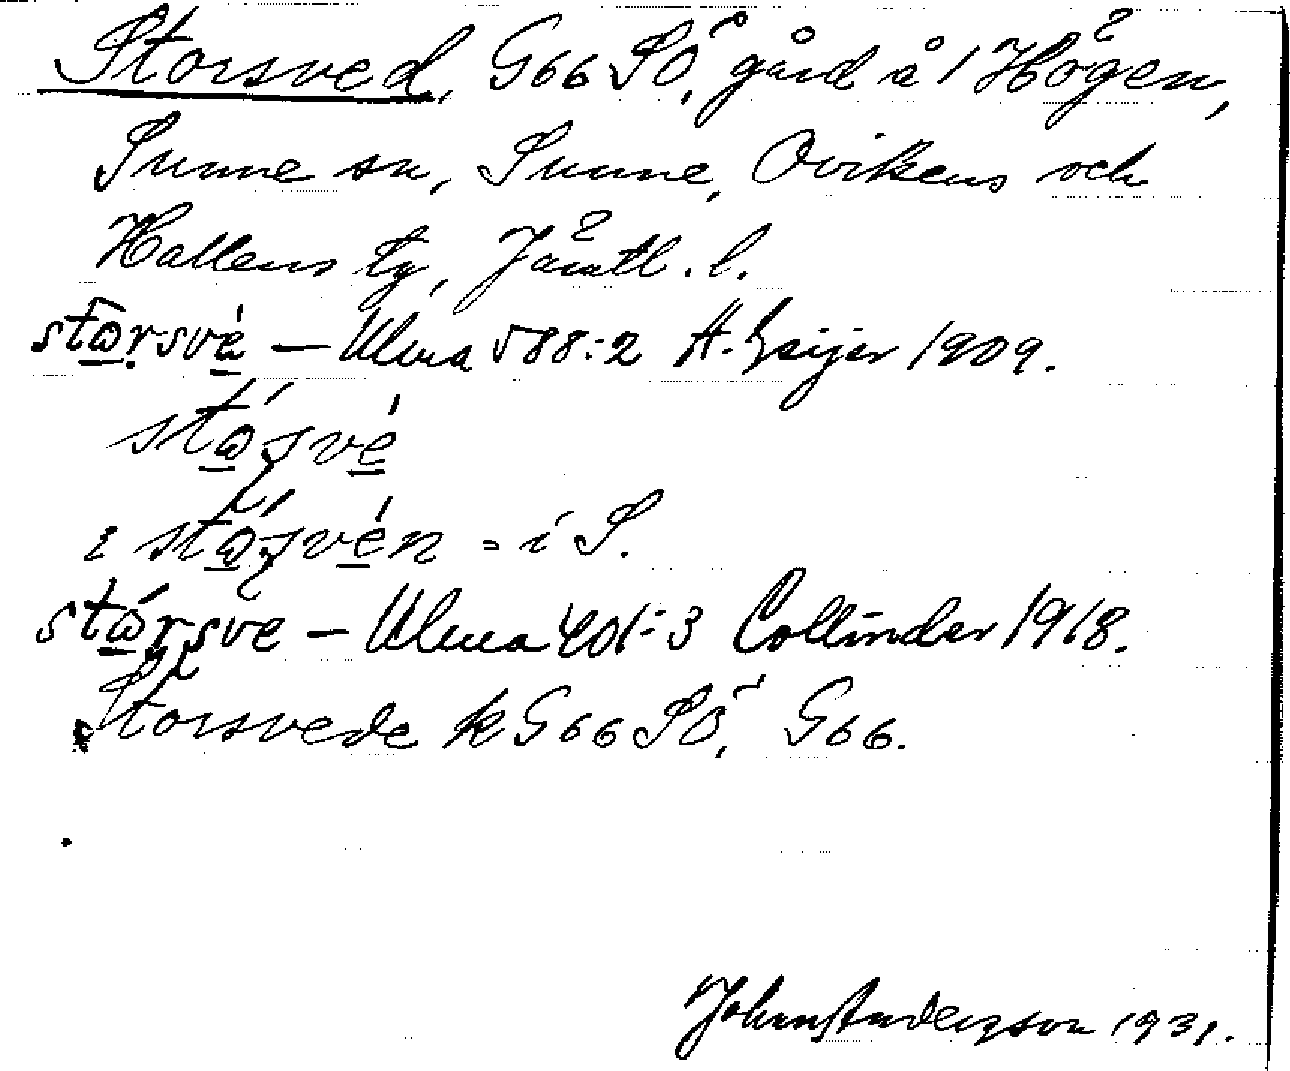 Storsved, G66 SÖ, gård å 1 Högen,
Sunne sn, Sunne, Ovikens och
Hallens tg, Jämtl. l.
stɷrsvè – Ulma 588:2 H. Geijer 1909.
stɷ́ṣvé
ɪ stɷ́ṣvén = i S.
stɷ́rsve – Ulma 401:3 Collinder 1918.
Storsvede k G66 SÖ, G66.
John Anderzson 1931.